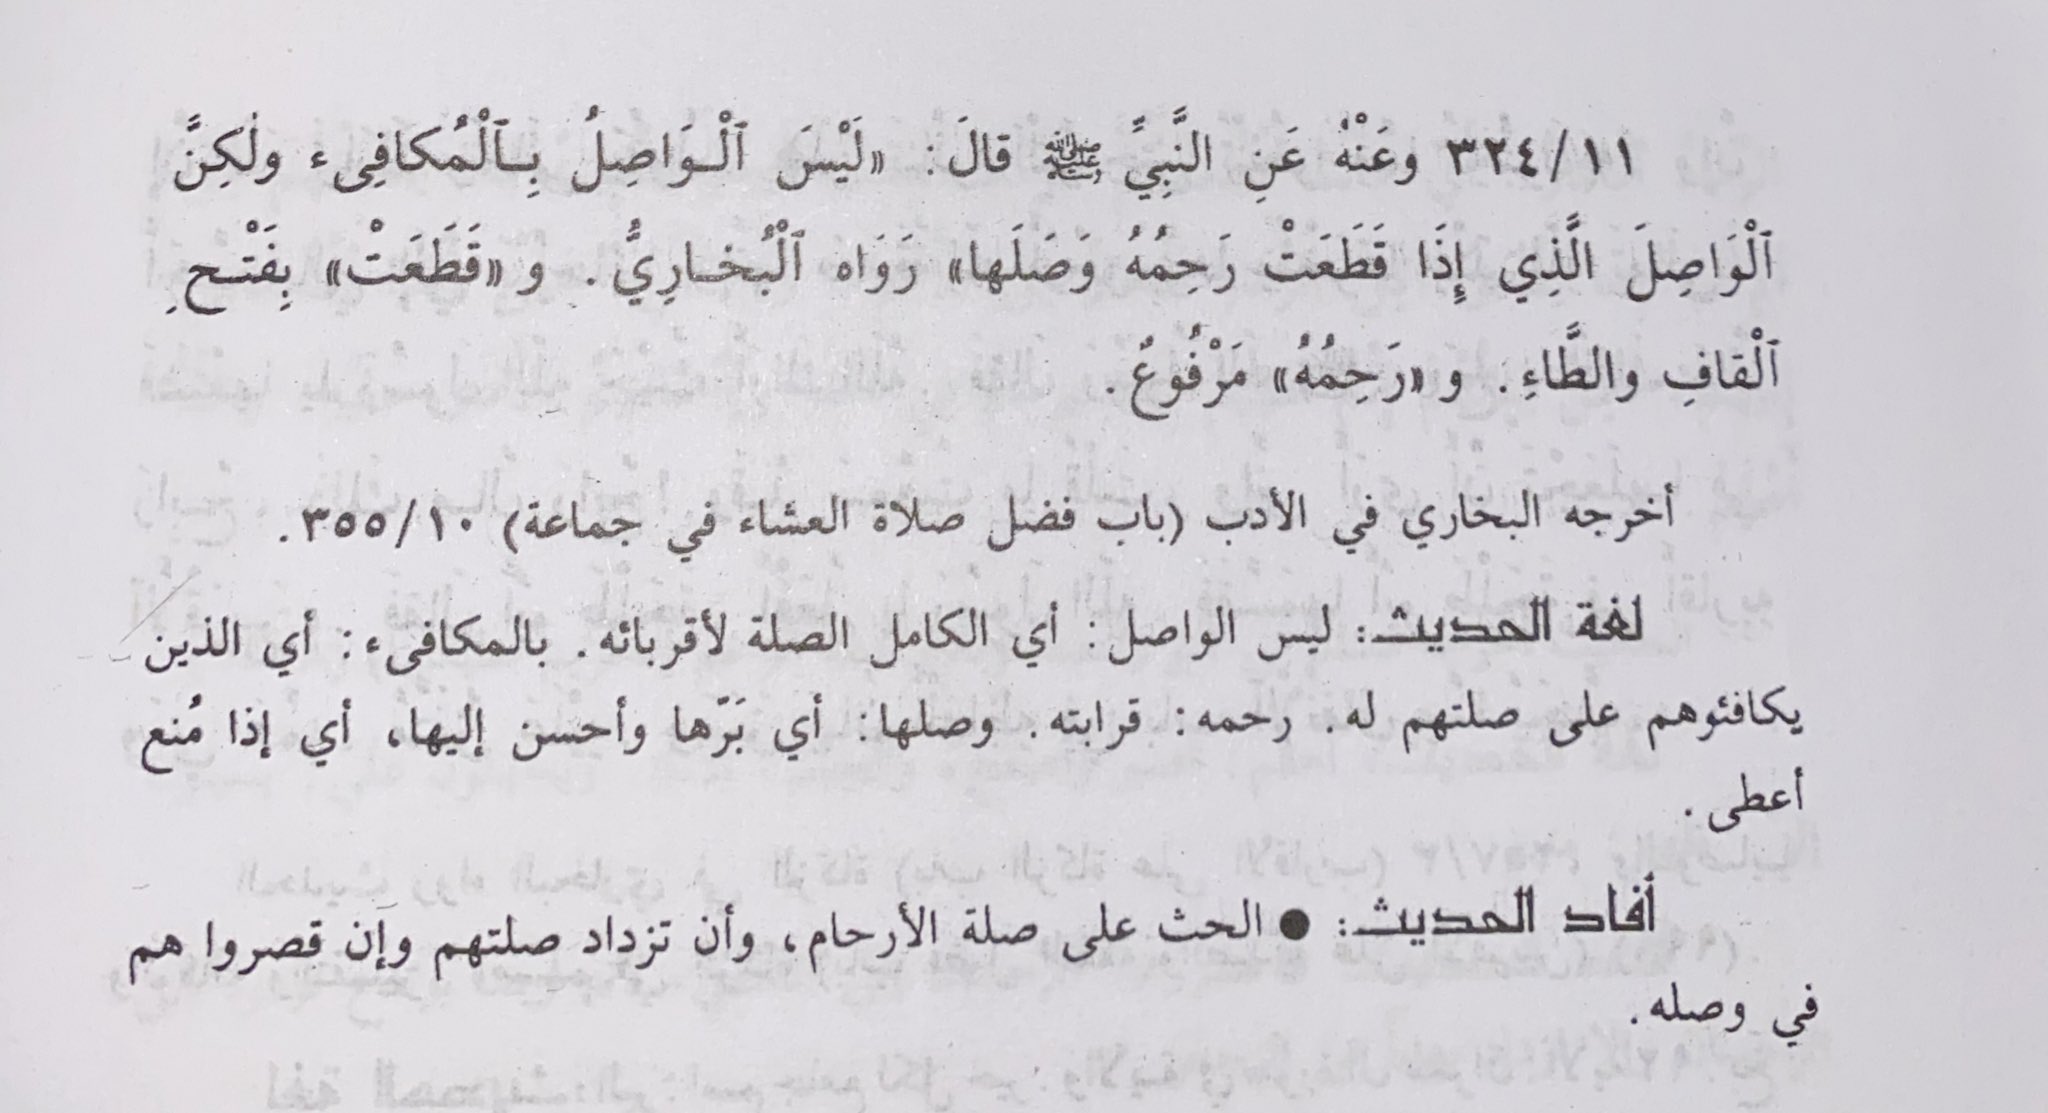 ٣٢٤/١١ وعَنْهُ عَنِ النَّبِيِّ ﷺ قالَ: «لَيْسَ ٱلْـوَاصِلُ بِـٱلْمُكافِىء ولٰكِنَّ
ٱلْوَاصِلَ الَّذِي إِذَا قَطَعَتْ رَحِمُهُ وَصَلَها» رَوَاه ٱلْبُخـارِيُّ. و «قَطَعَتْ» بِفَتْـحِ
ٱلْقافِ والطَّاءِ. و «رَحِمُهُ» مَرْفُوعٌ.
أخرجه البخاري في الأدب (باب فضل صلاة العشاء في جماعة) ٣٥٥/١٠.
لغة الحديث: ليس الواصل: أي الكامل الصلة لأقربائه. بالمكافىء: أي الذين
يكافئوهم على صلتهم له. رحمه: قرابته. وصلها: أي بَرّها وأحسن إليها، أي إذا مُنع
أعطى.
أفاد الحديث: ● الحث على صلة الأرحام، وأن تزداد صلتهم وإن قصروا هم
في وصله.